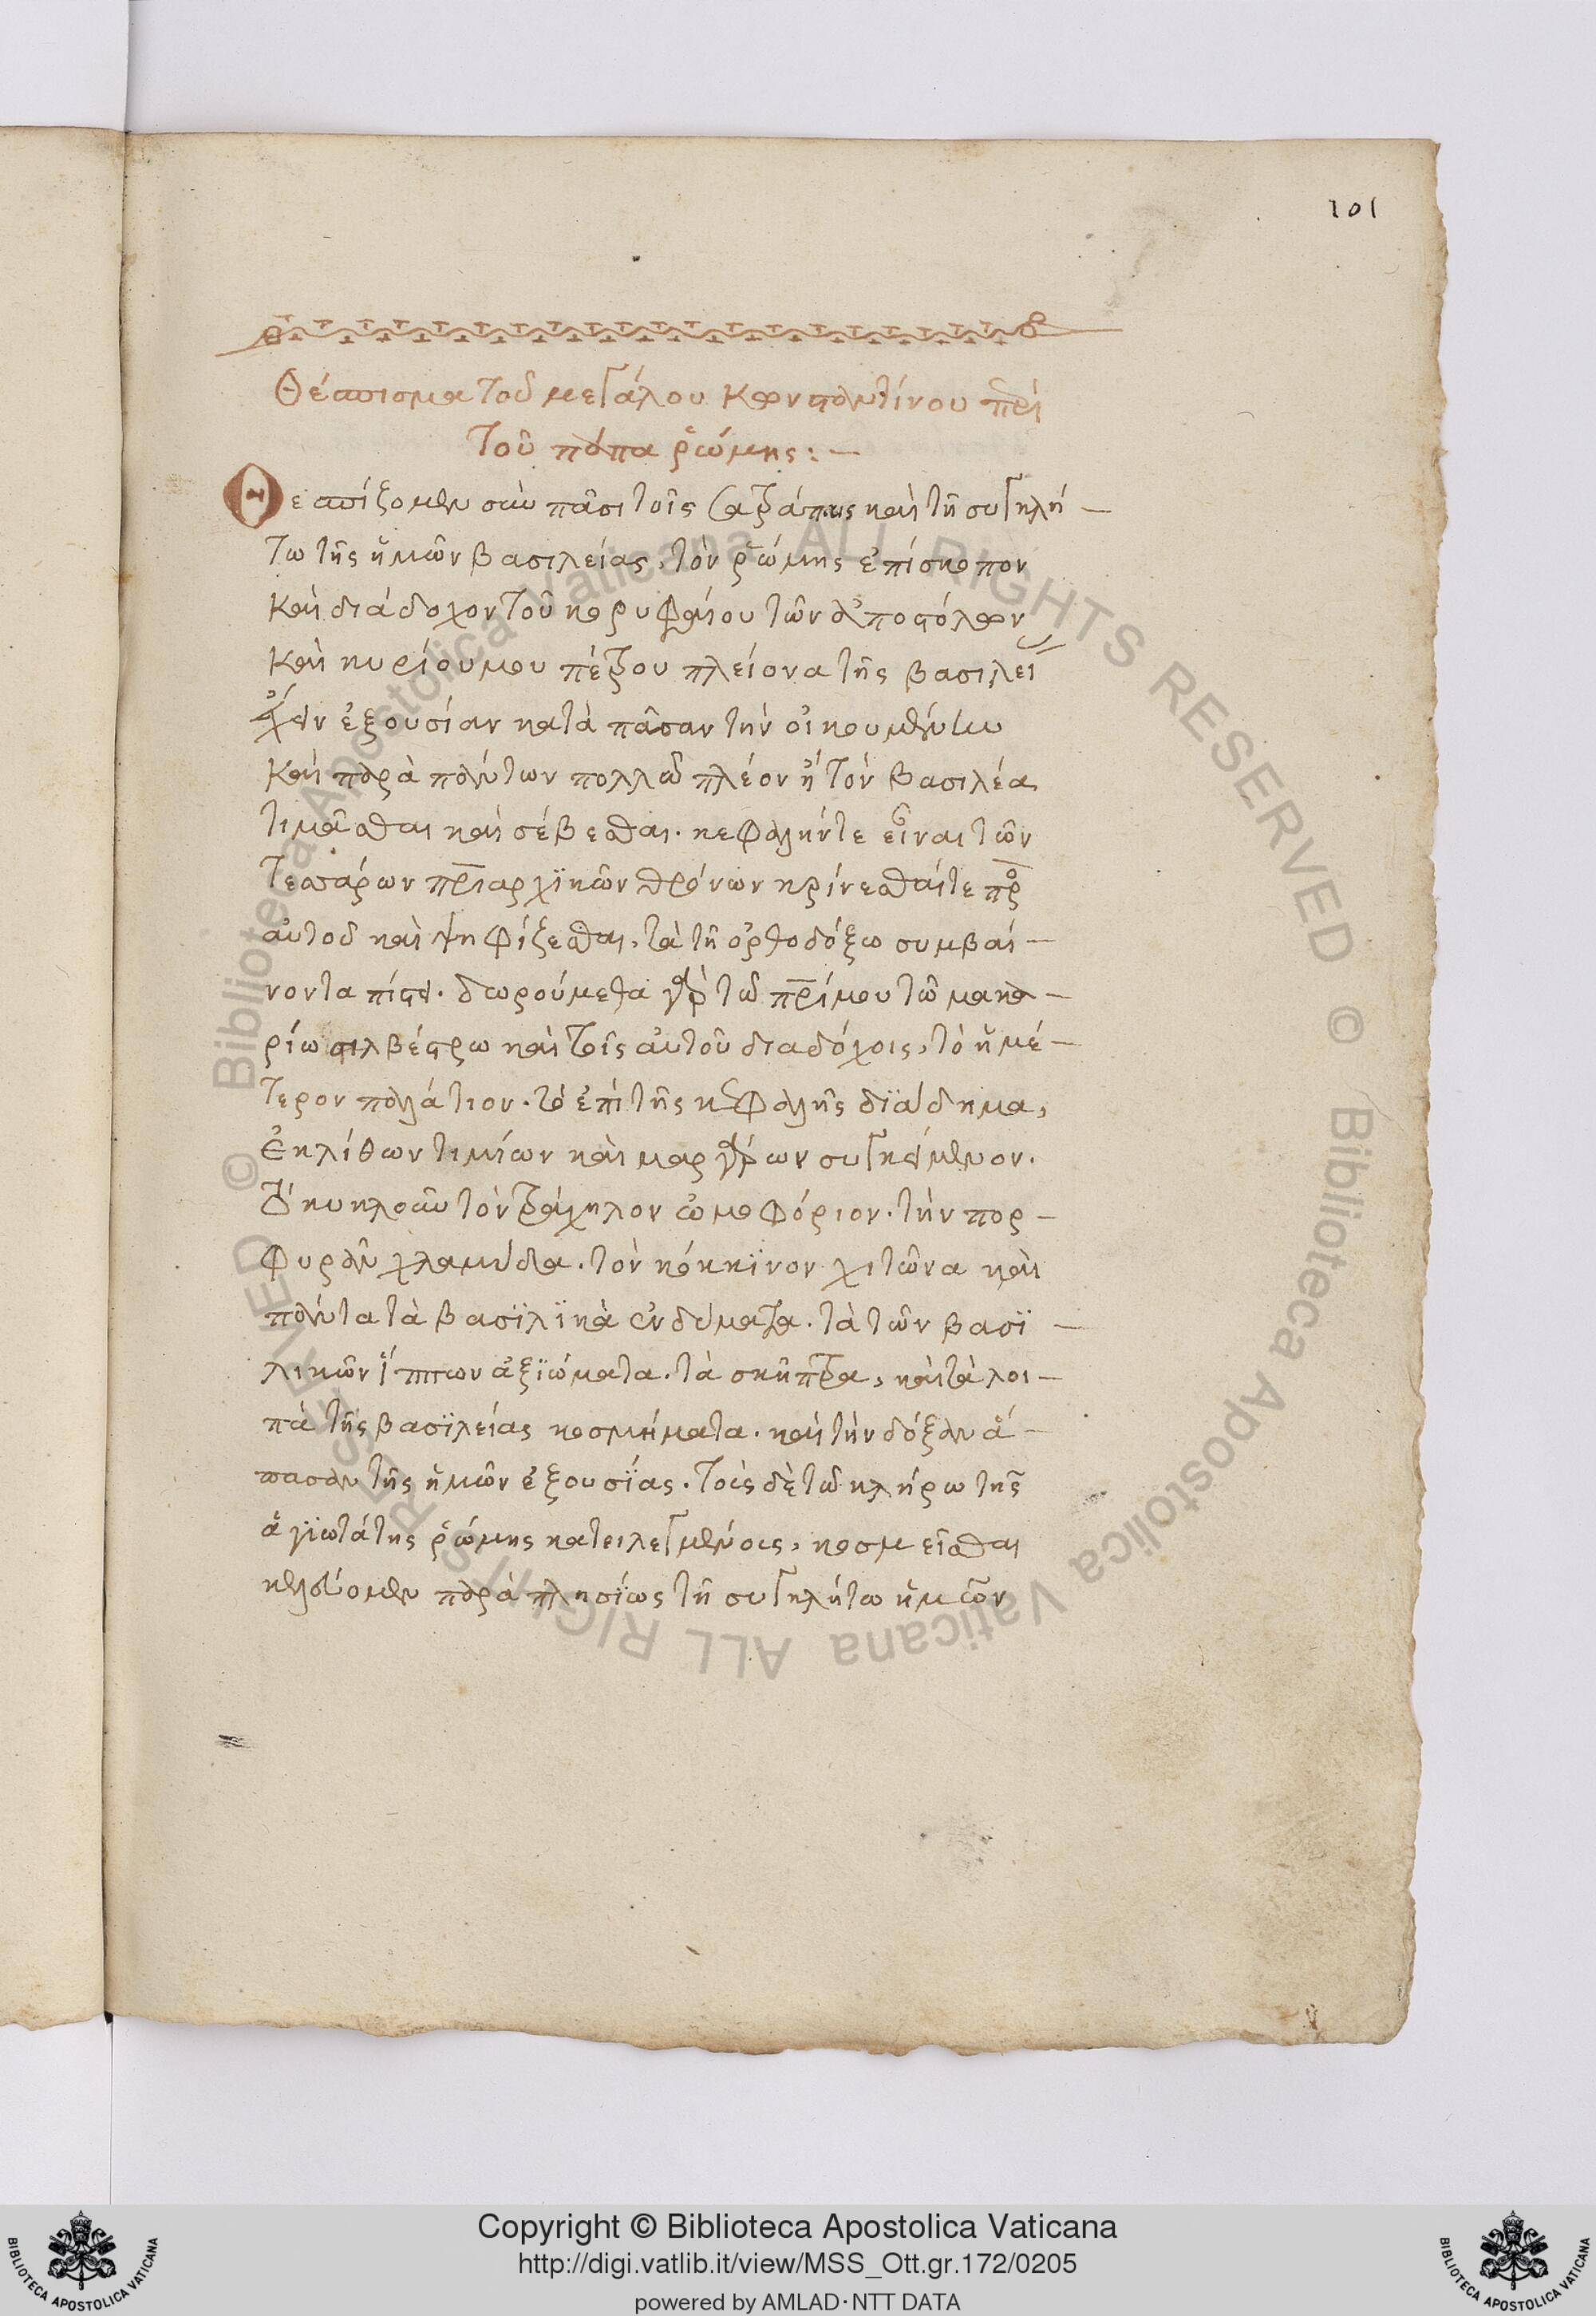 101
Θέσπισμα τοῦ μεγάλου Κωνσταντίνου περὶ
τοῦ πάπα ῥώμης:—
Θεσπίζομεν σὺν πᾶσι τοῖς σατράπαις καὶ τῆ συγκλή-
τω τῆς ἡμῶν βασιλείας, τὸν ῥώμης ἐπίσκοπον
καὶ διάδοχον τοῦ κορυφαίου τῶν ἀποστόλων
καὶ κυρίου μου πέτρου πλείονα τῆς βασιλεί
ἔχειν ἐξουσίαν κατὰ πᾶσαν τὴν οἰκουμένην
καὶ παρὰ πάντων πολλῶ πλέον ἢ τὸν βασιλέα
τιμᾶσθαι καὶ σέβεσθαι. κεφαλήν τε εἶναι τῶν
τεσσάρων πριαρχϊκῶν θρόνων κρίνεσθαί τε παρ
αὐτοῦ καὶ ψηφίζεσθαι, τὰ τῆ ὀρθοδόξω συμβαί-
νοντα πίστει. δωρούμεθα γὰρ τῶ πρίμου τῶ μακα-
ρίω σιλβέστρω καὶ τοῖς αὐτοῦ διαδόχοις, τὸ ἡμέ-
τερον παλάτιον. τὸ ἐπὶ τῆς κεφαλῆς διάδημα,
ἐκ λίθων τιμίων καὶ μαργάρων συγκείμενον.
τὸ κυκλοῦν τὸν τράχηλον ὠμοφόριον. τὴν πορ-
φυρᾶν χλαμύδα. τὸν κόκκϊνον χιτῶνα καὶ
πάντα τὰ βασϊλϊκὰ ἐνδύματα. τὰ τῶν βασϊ-
λικῶν ἵππων ἀξϊώματα. τὰ σκῆπτρα, καὶ τὰ λοι-
πὰ τῆς βασϊλείας κοσμήματα. καὶ τὴν δόξαν ἅ-
πασαν τῆς ἡμῶν ἐξουσϊας. τοὺς δὲ τῶ κλήρω τῆς
ἁγϊωτάτης ῥώμης κατειλεγμένους, κοσμεῖσθαι
κελεύομεν παρὰ πλησϊως τῆ συγκλήτω ἡμῶν
© Biblioteca Apostolica Vaticana ALL RIGHTS RESERVED © Biblioteca Apostolica Vaticana ALL RIGHTS RESERVED
Copyright © Biblioteca Apostolica Vaticana
http://digi.vatlib.it/view/MSS_Ott.gr.172/0205
powered by AMLAD·NTT DATA
BIBLIOTECA APOSTOLICA VATICANA
BIBLIOTECA APOSTOLICA VATICANA